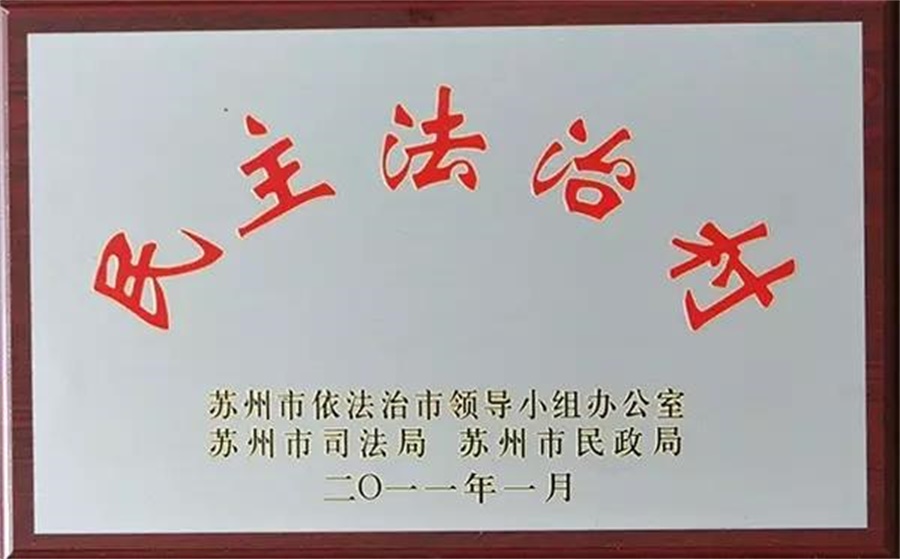 民主法治村
苏州市依法治市领导小组办公室
苏州市司法局 苏州市民政局
二〇一一年一月